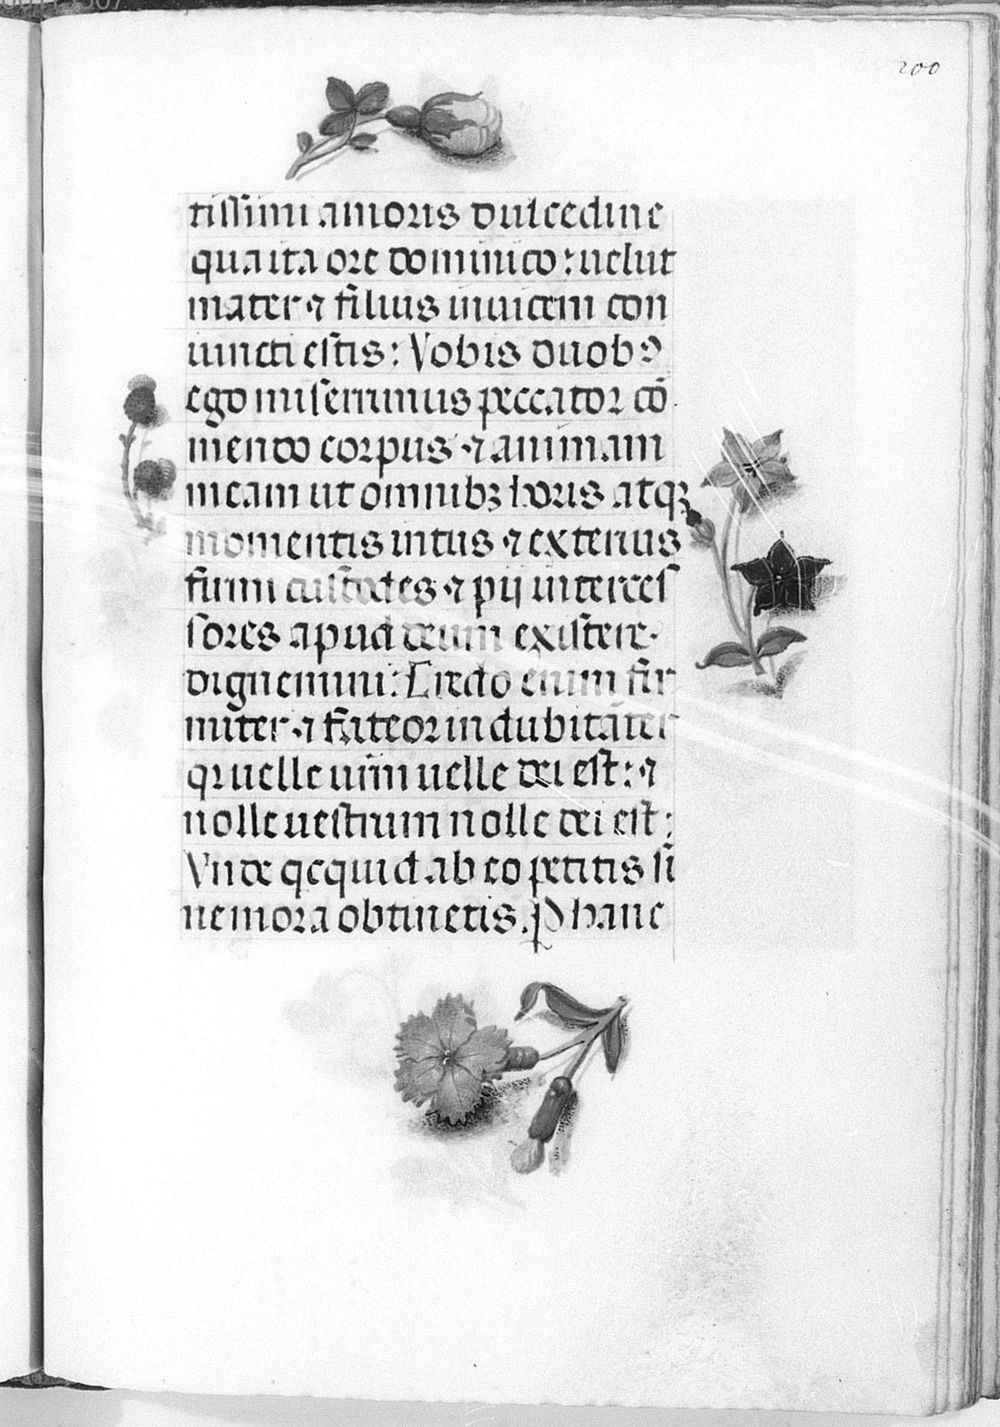 200
tissimi amoris dulcedine
qua ita ore dominico: uelut
mater ⁊ filius inuicem con
iuncti estis: Vobis duobꝰ
ego miserrimus peccator cō
mendo corpus ⁊ animam
meam ut omnibꝫ horis atqꝫ
momentis intus ⁊ exterius
firmi custodes ⁊ pij interces
sores apud deum existere
dignemini: Credo enim fir
miter ⁊ fateor indubitāter
qꝛ uelle ur̄m uelle dei est: ⁊
nolle uestrum nolle dei est:
Vnde qcquid ab eo petitis si
ne mora obtinetis. P hanc